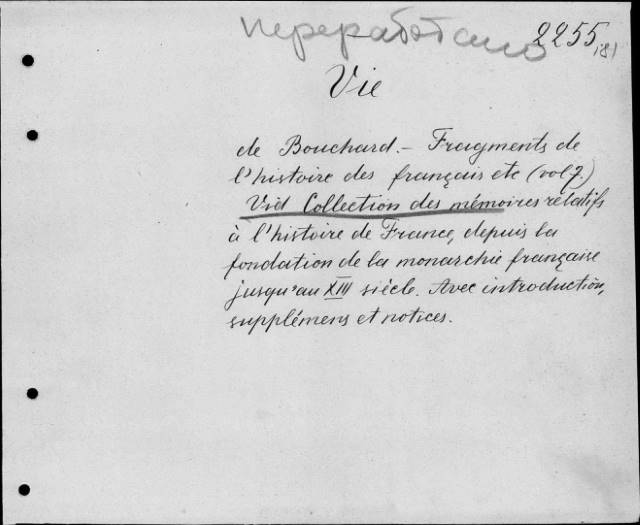 переработано 2255,181
Vie
de Bouchard. – Fragments de
l'histoire des français etc (vol 7.)
Vid Collection des mémoires relatifs
à l'histoire de France, depuis la
fondation de la monarchie française
jusqu'au XIII siècle. Avec introduction,
supplémens et notices.